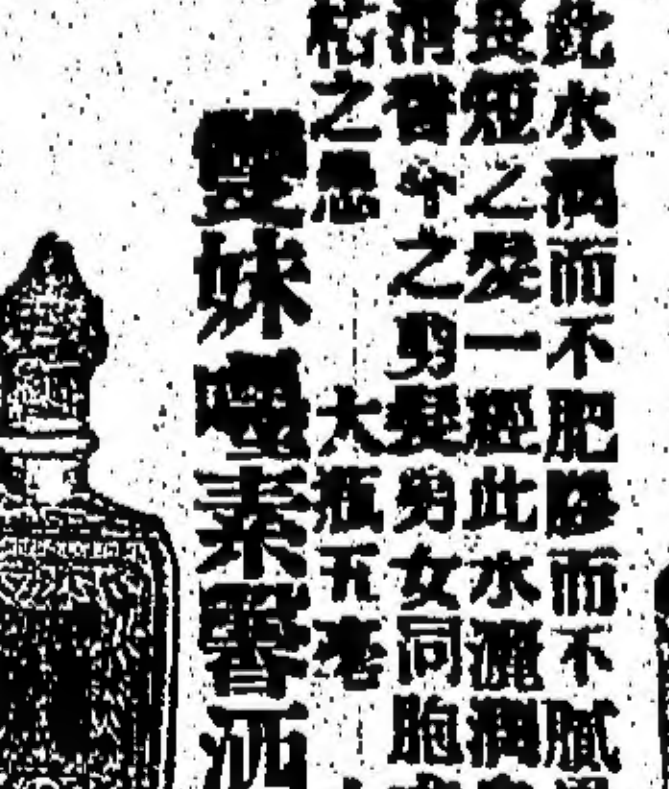 此水潤而不肥膠而不膩
長短之髮一經此水灑潤
消習今之剪髮男女同胞
枯之患 大瓶五毫
雙妹嚜素馨洒